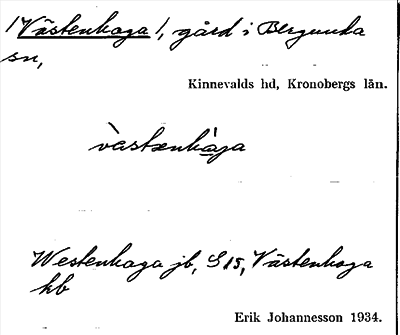 /Västenhaga/, gård i Bergunda
sn,
Kinnevalds hd, Kronobergs län.
vàstænhá̱ga
Westenhaga jb, S 15, Västenhaga
kb
Erik Johannesson 1934.